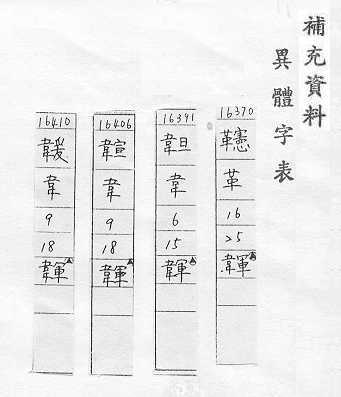 補充資料
異體字表
16370
革
16
25
韗
16391
韋
6
15
韗
16406
韋
9
18
韗
16410
韋
9
18
韗